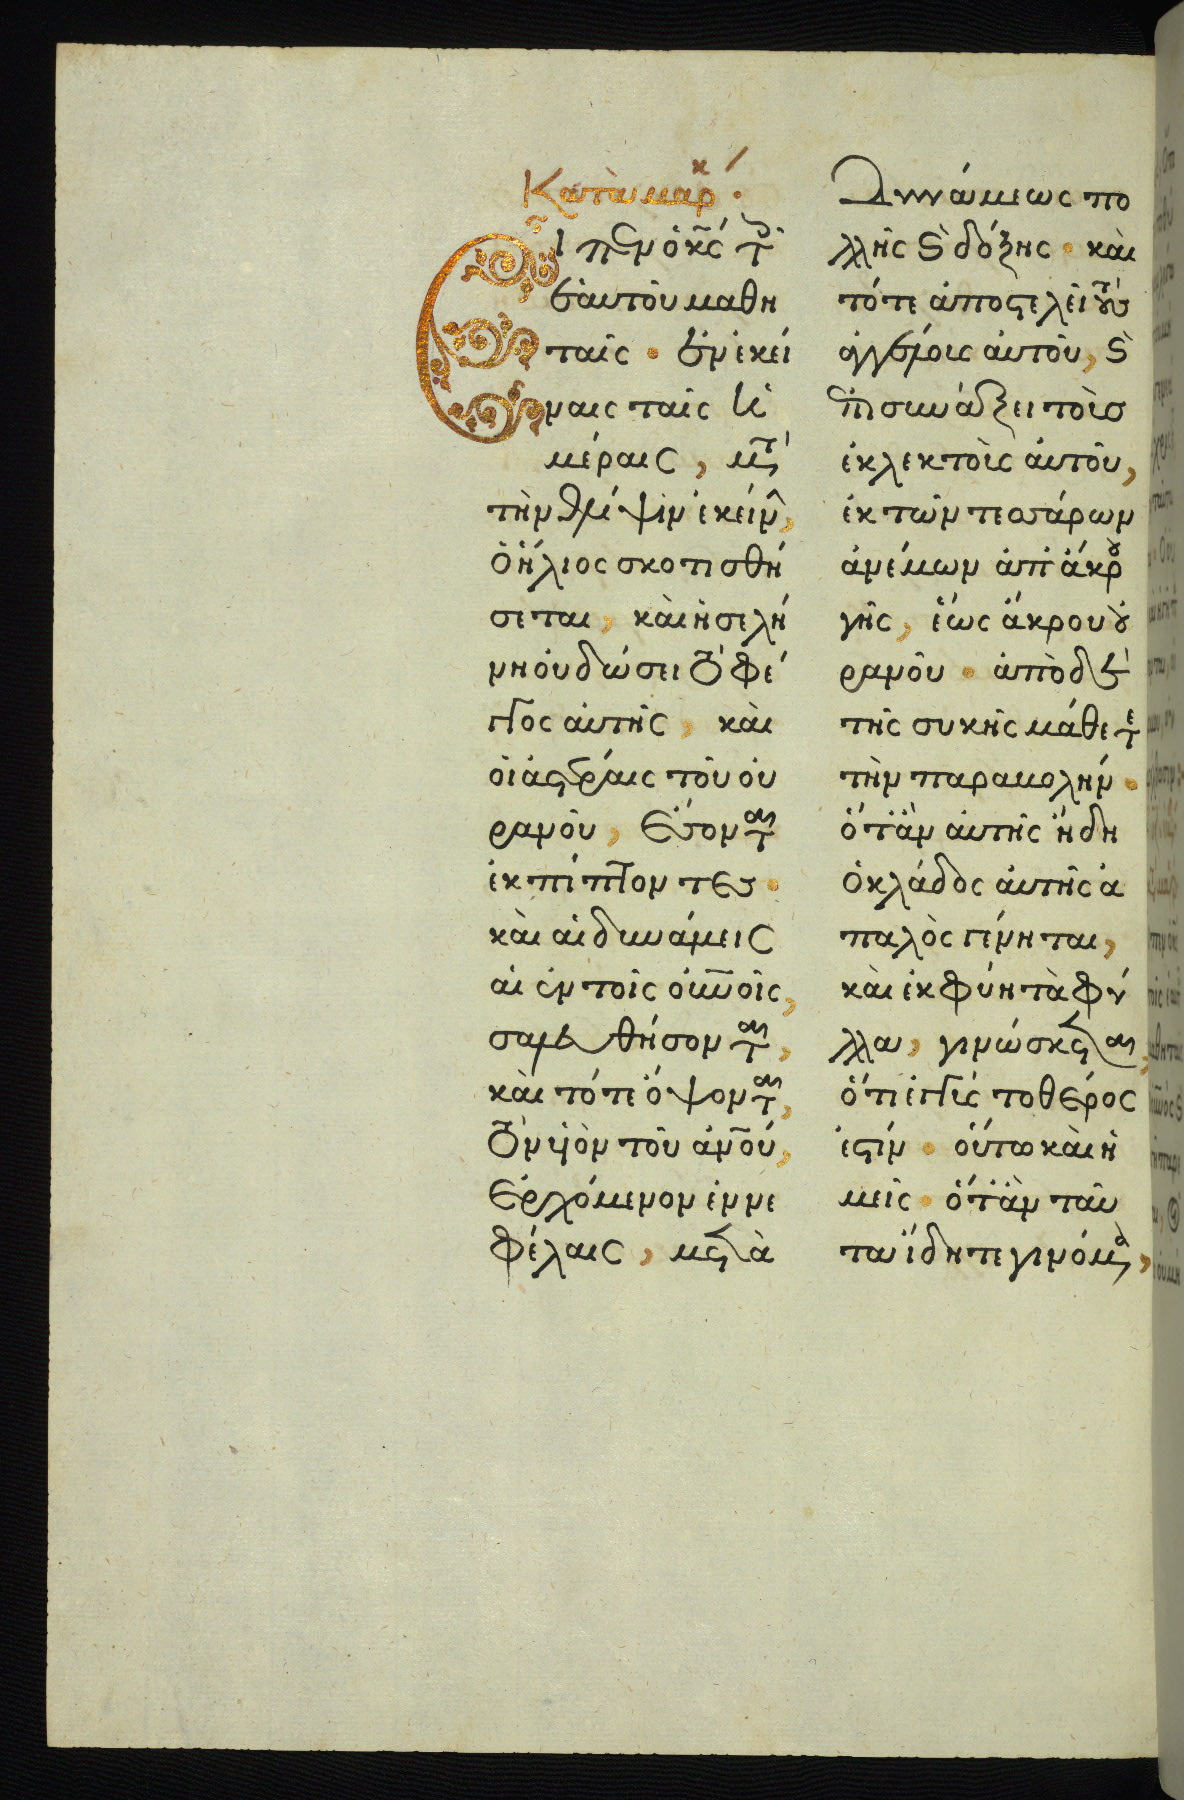 Κατὰ μαρκ
Εἶπεν ὁ κς τοῖς
ἑαυτοῦ μαθη
ταῖς · ἐν ἐκεί
ναις ταῖς ἡ
μέραις, μετὰ
τὴν θλίψιν ἐκείνην,
ὁ ἥλιος σκοτισθή
σεται, καὶ ἡ σελή
νη οὐ δώσει τὸ φέ
γγος αὐτῆς, καὶ
οἱ ἀστέραις τοῦ οὐ
ρανοῦ, ἔσονται
ἐκπίπτοντες ·
καὶ αἱ δυνάμεις
αἱ ἐν τοῖς οὐνοῖς,
σαλευθήσονται,
καὶ τότε ὄψονται,
τὸν υἱὸν τοῦ ἀνου,
ἐρχόμενον ἐν νε
φέλαις, μετὰ
Δυνάμεως πο
λλῆς καὶ δόξης · καὶ
τότε ἀποστελεῖ τοὺς
ἀγγέλοις αὐτοῦ, καὶ
ἐπισυνάξει τοὺς
ἐκλεκτοὺς αὐτοῦ,
ἐκ τῶν τεσσάρων
ἀνέμων ἀπ' ἄκρου
γῆς, ἕως ἄκρου οὐ
ρανοῦ · ἀπὸ δὲ
τῆς συκῆς μάθετε
τὴν παραβολήν ·
ὅταν αὐτῆς ἤδη
ὁ κλάδος αὐτῆς ἁ
παλὸς γένηται,
καὶ ἐκφύη τὰ φύ
λλα, γινώσκεται,
ὅτι ἐγγὺς τὸ θέρος
ἐστίν · οὕτω καὶ ἡ
μεῖς · ὅταν ταῦ
τα ἴδητε γινόμενα,